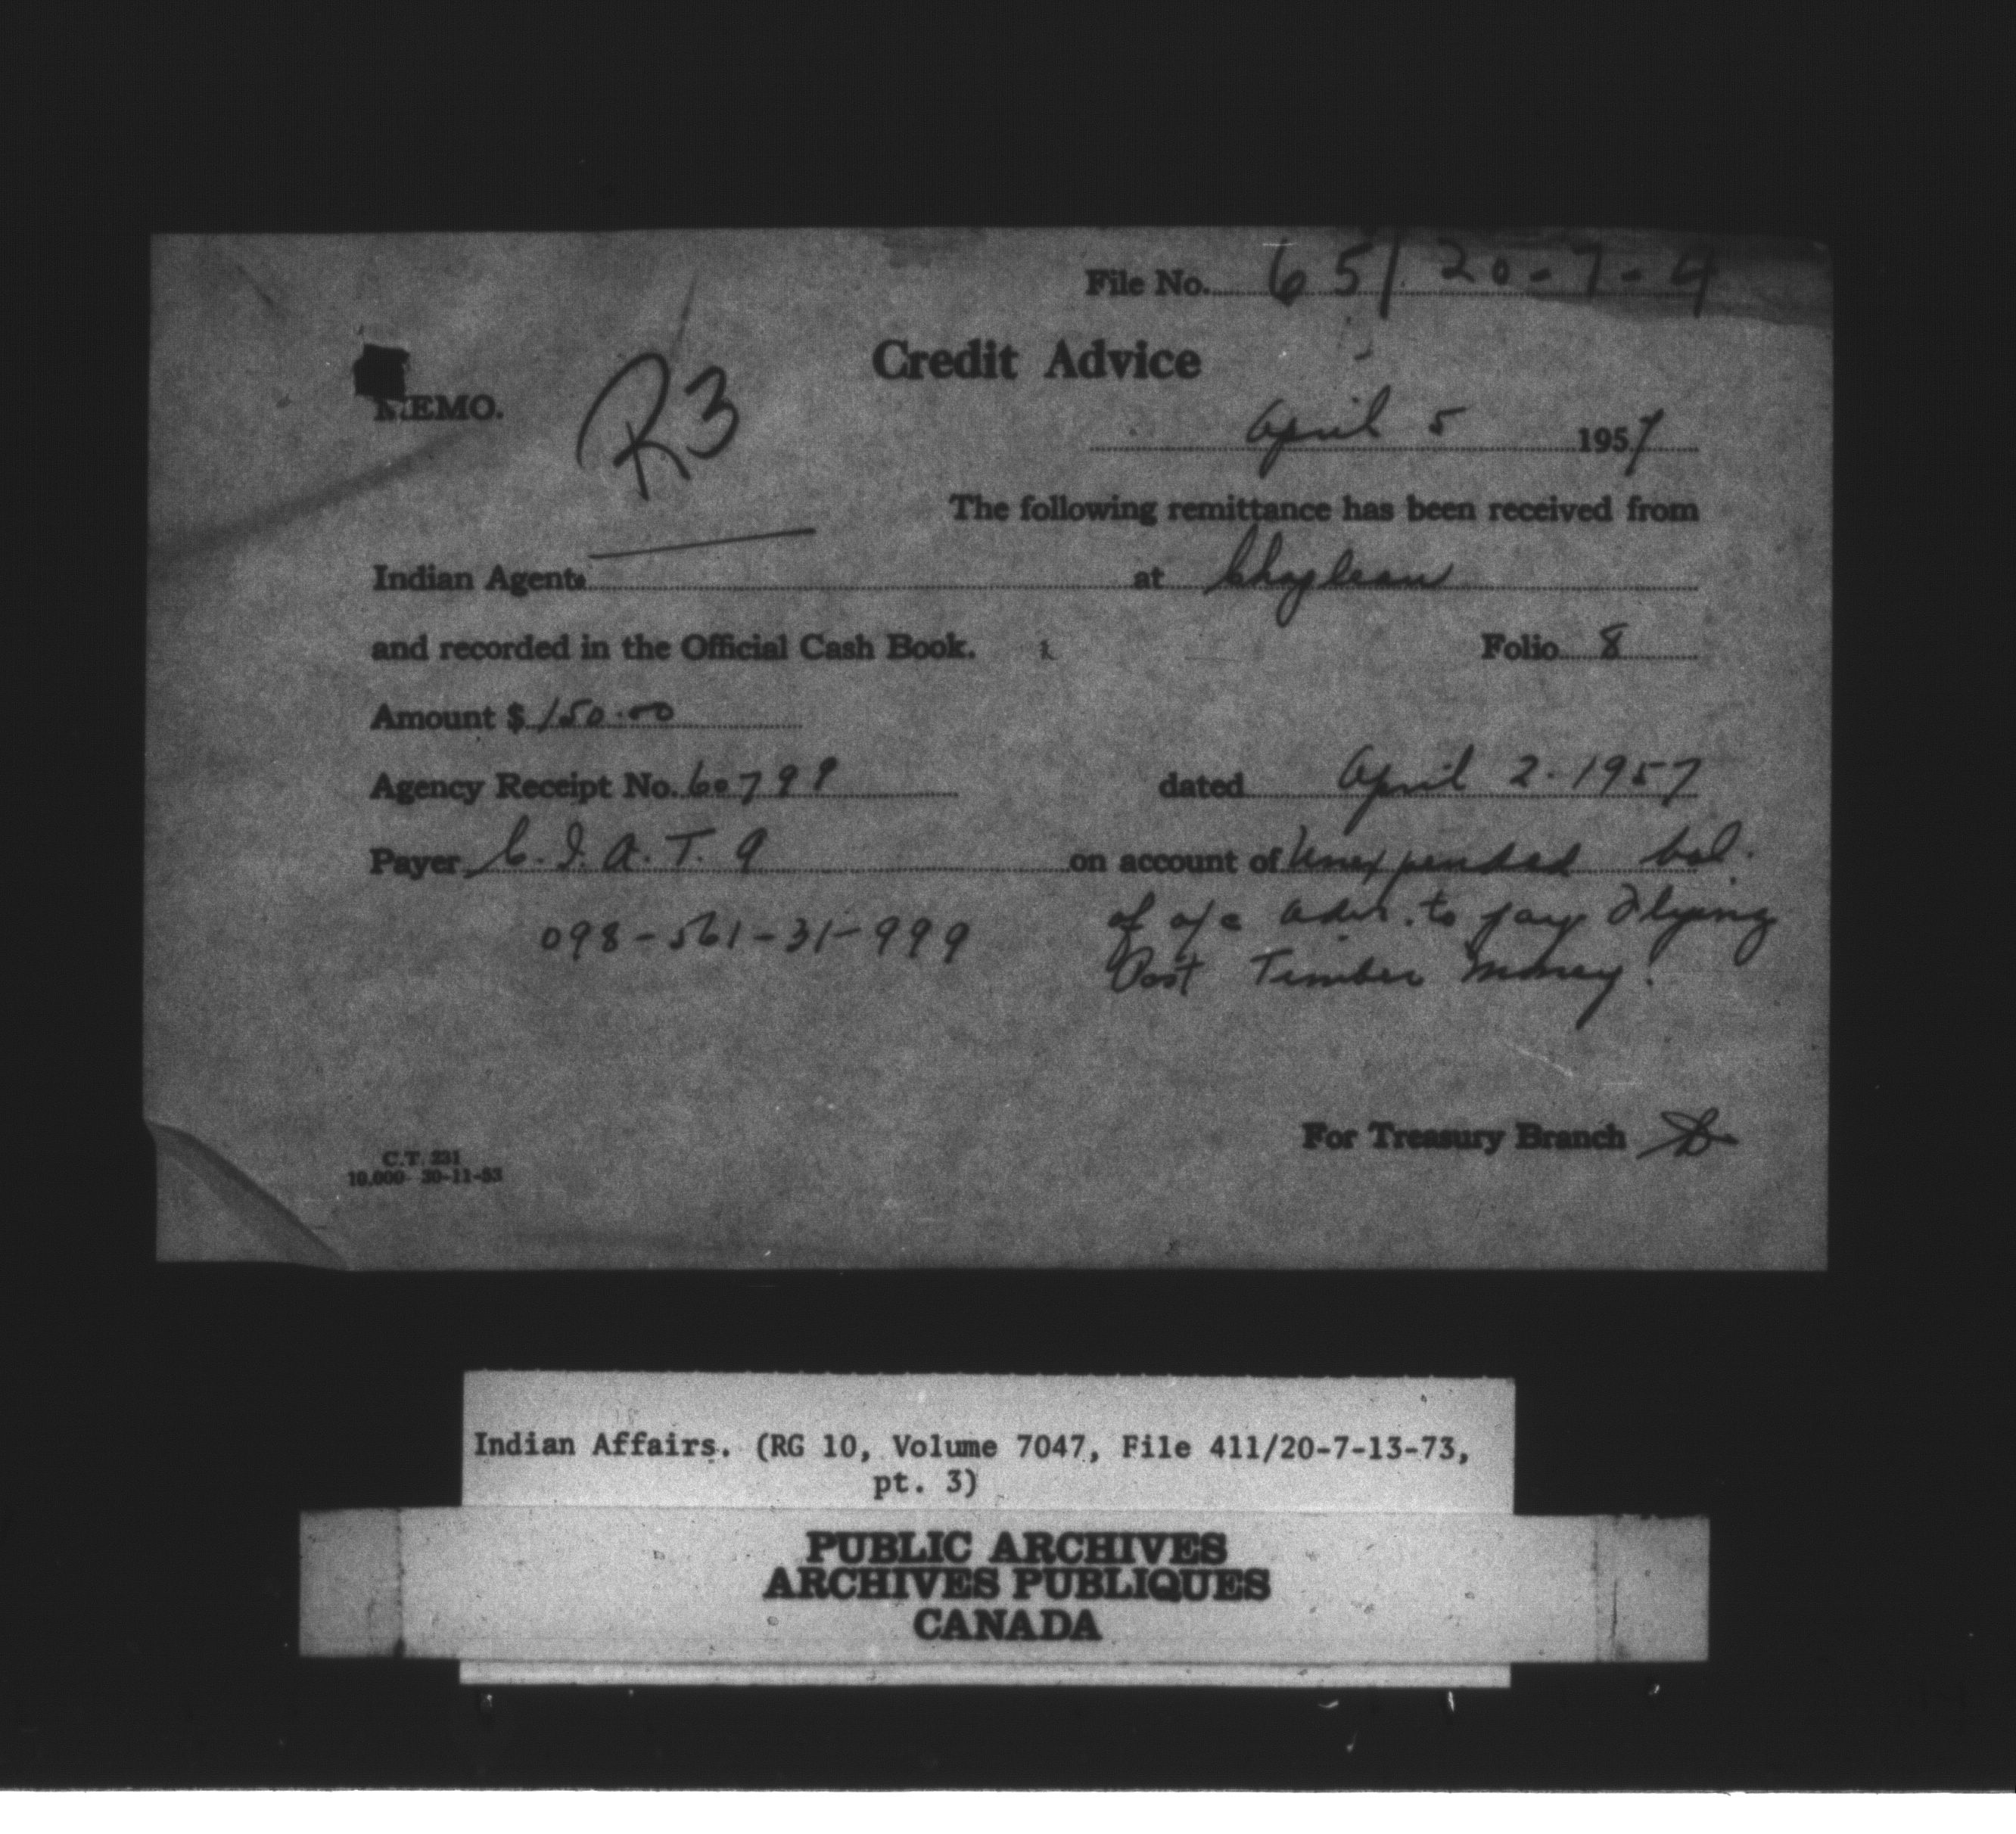 File No. 65/20-7-4
Credit Advice
MEMO.
R3
April 5 1957
The following remittance has been received from
Indian Agent at Chapleau
and recorded in the Official Cash Book. Folio 8
Amount $ 150.00
Agency Receipt No. 60799 dated April 2. 1957
Payer C.I.A.T.A on account of Unexpended bal.
098-561-31-999 of a/c adv. to pay Flying
Post Timber Money.
For Treasury Branch
C.T. 231
10,000 30-11-53
Indian Affairs. (RG 10, Volume 7047, File 411/20-7-13-73,
pt. 3)
PUBLIC ARCHIVES
ARCHIVES PUBLIQUES
CANADA